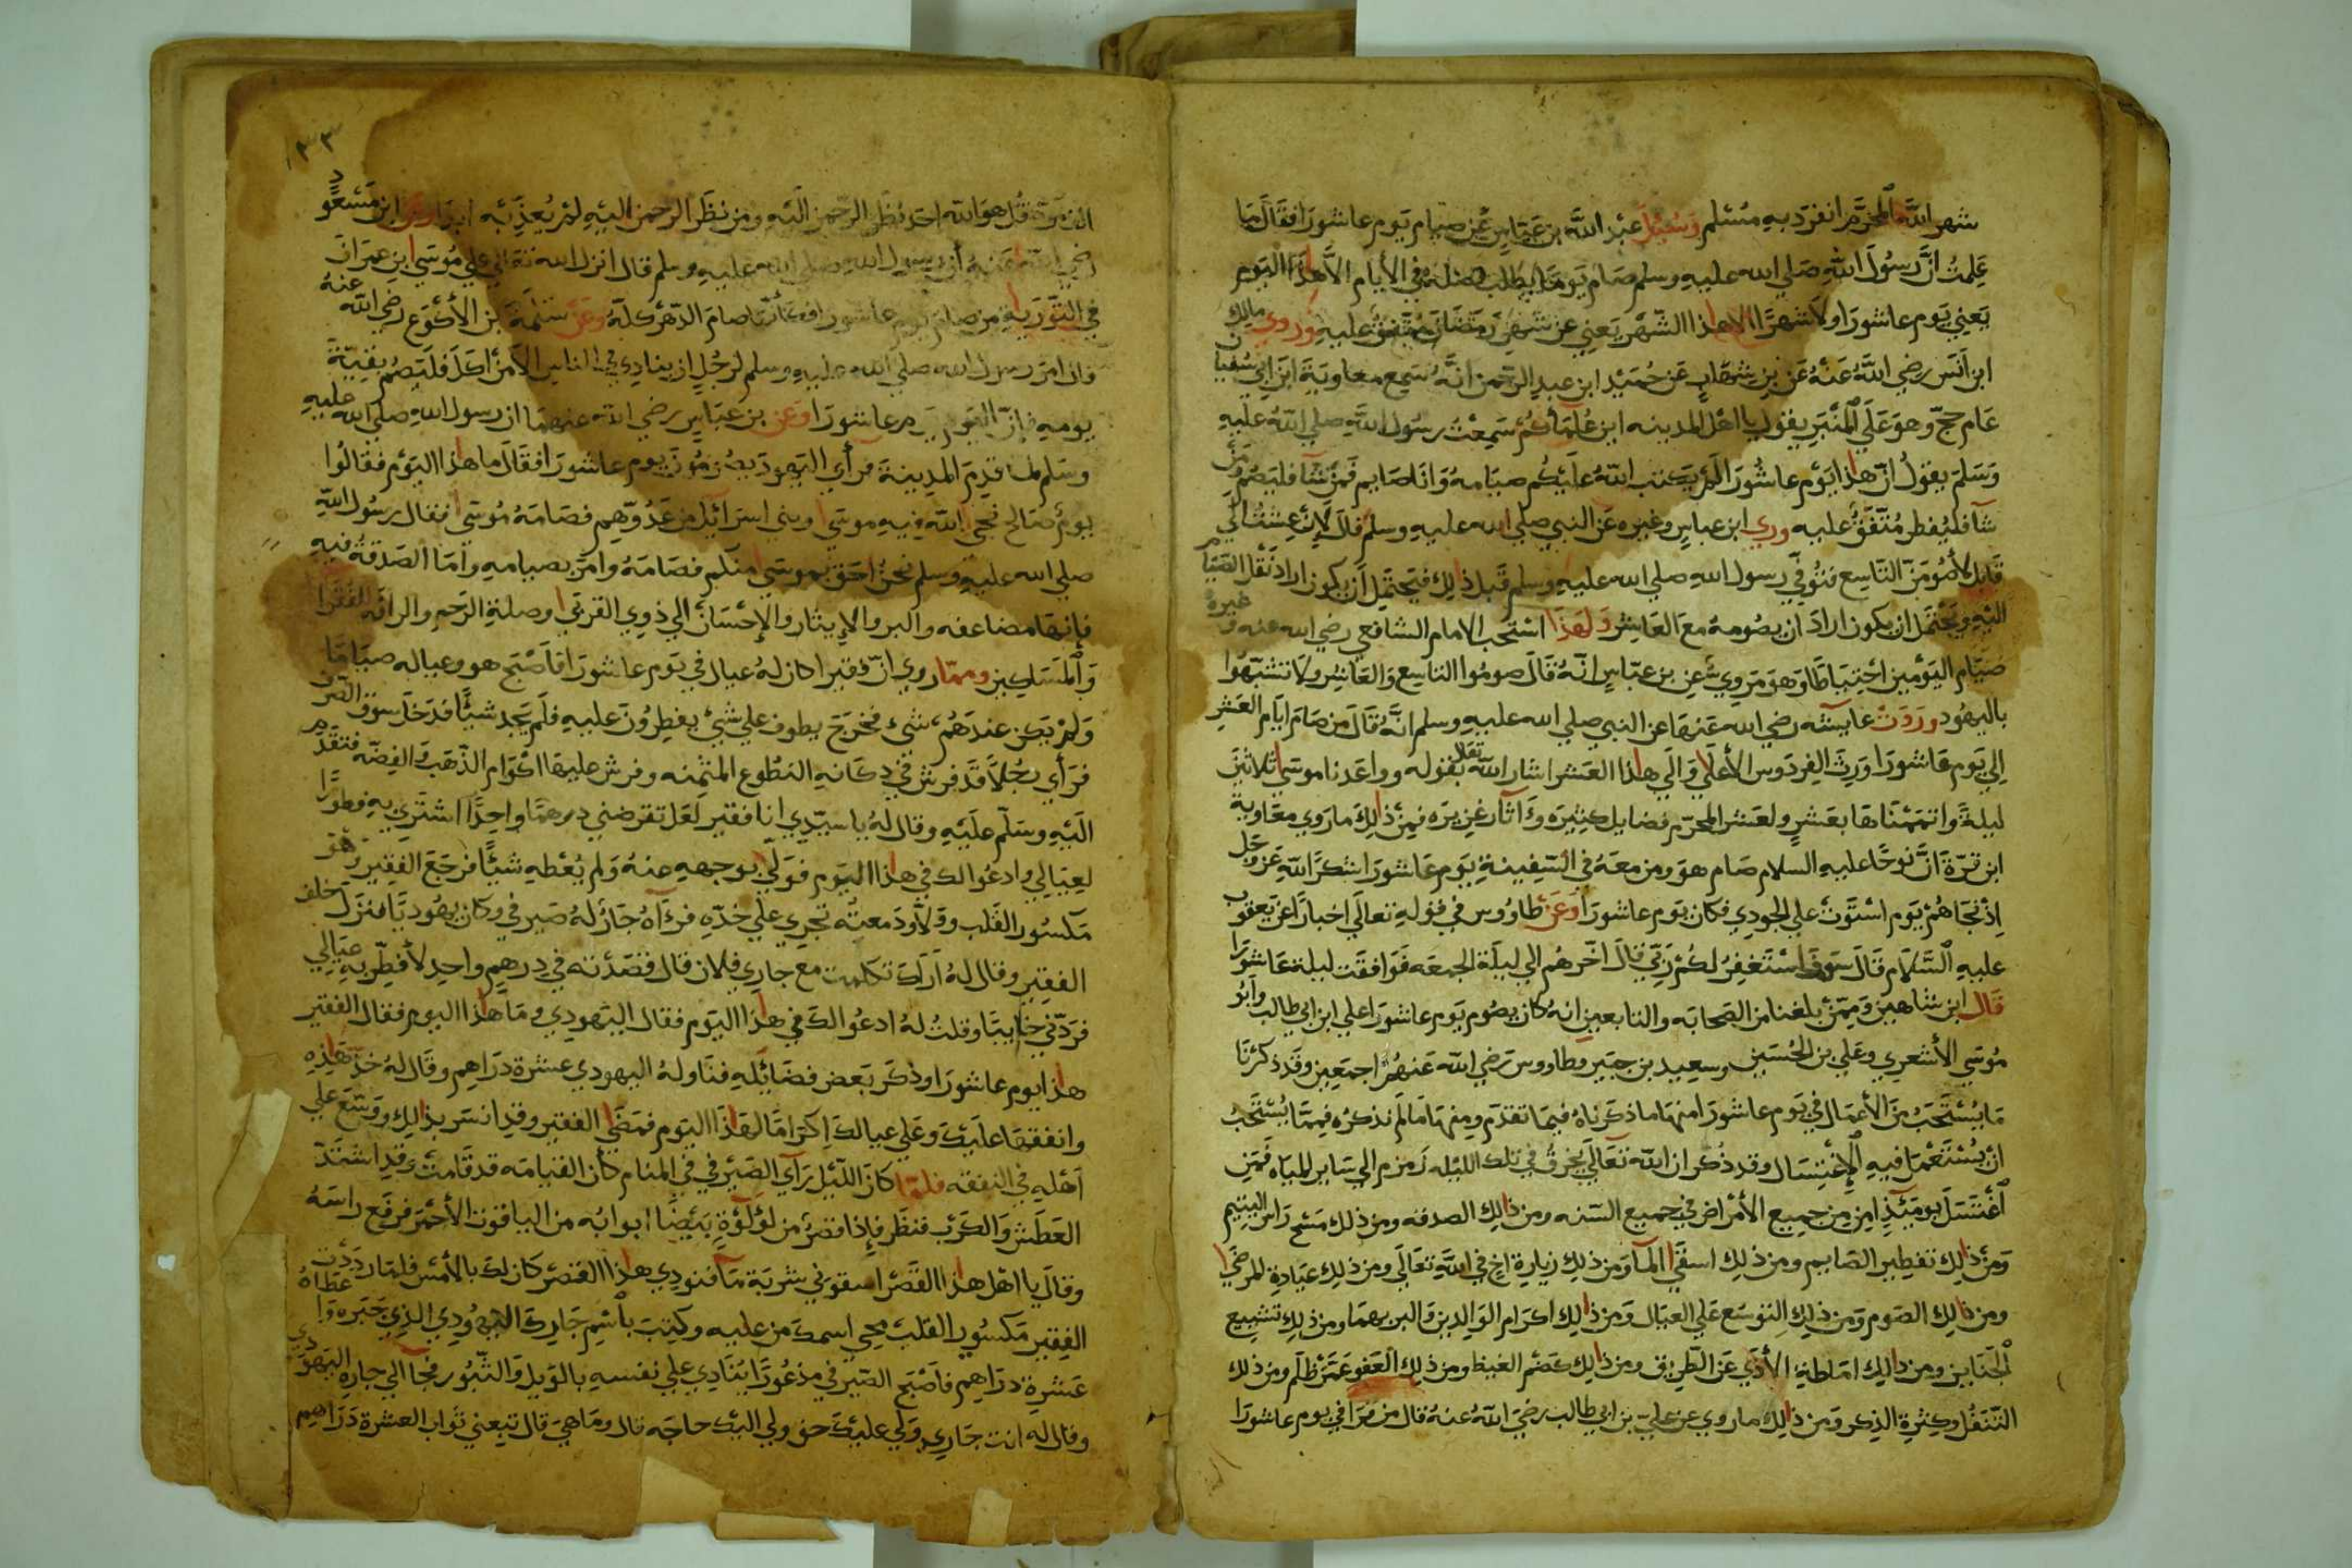 شهر الله المحرم انفرد به مسلم وسئل عبد الله بن عباس عن صيام يوم عاشورا فقال ما
علمت ان رسول الله صلي الله عليه وسلم صام يوما يطلب فضله في الأيام الا هذا اليوم
يعني يوم عاشورا ولا شهرا الا هذا الشهر يعني عن شهر رمضان متفق عليه وروي مالك
ابن أنس رضي الله عنه عن بن شهاب عن حميد ابن عبد الرحمن انه سمع معاوية ابن ابي سفيان
عام حج وهو علي المنبر يقول يا اهل المدينه اين علمأكم سمعت رسول الله صلي الله عليه
وسلم يقول ان هذا يوم عاشورا لم يكتب الله عليكم صيامه وانا صايم فمن شا فليصم ومن
شآ فليفطر متفق عليه وروي ابن عباس وغيره عن النبي صلي الله عليه وسلم قال لإن عشت الي
قابل لأصومن التاسع فتوفي رسول الله صلي الله عليه وسلم قبل ذلك فيحتمل أن يكون اراد نقل الصيام
اليه ويحتمل ان يكون اراد ان يصومه مع العاشر ولهذا استحب الامام الشافعي رضي الله عنه وغيره
صيام اليومين احتياطا وهو مروي عن بن عباس انه قال صوموا التاسع والعاشر ولا تشبهوا
باليهود وروت عايشه رضي الله عنها عن النبي صلي الله عليه وسلم انه قال من صام ايام العشر
إلي يوم عاشورا ورث الفردوس الأعلي والي هذا العشر اشار الله تعالا بقوله وواعدنا موسي ثلاثين
ليلة واتممناها بعشر ولعشر المحرم فضايل كثيره وآثار غزيره فمن ذلك ما روي معاوية
ابن قرة ان نوحا عليه السلام صام هو ومن معه في السفينة يوم عاشورا شكرا لله عز وجل
إذ نجاهم يوم استوت علي الجودي فكان يوم عاشورا وعن طاووس في قوله تعالي اخبارا عن يعقوب
عليه السلام قال سوف استغفر لكم ربي قال اخرهم الي ليلة الجمعه فوافقت ليلة عاشورا
قال ابن شاهين وممن بلغنا من الصحابه والتابعين انه كان يصوم يوم عاشورا علي ابن ابي طالب وأبو
موسي الأشعري وعلي بن الحسين وسعيد بن جبير وطاووس رضي الله عنهم اجمعين وقد ذكرنا
ما يستحب من الأعمال في يوم عاشورا منها ما ذكرناه فيما تقدم ومنها ما لم نذكره فمما يستحب
ان يستعمل فيه الإغتسال وقد ذكر ان الله تعالي يخرق في تلك الليله زمزم الي ساير المياه فمن
أغتسل يوميذ امن من جميع الأمراض في جميع السنه ومن ذلك الصدقه ومن ذلك مسح راس اليتيم
ومن ذلك تفطير الصايم ومن ذلك اسقي المآ ومن ذلك زيارة اخ في الله تعالي ومن ذلك عيادة المرضي
ومن ذلك الصوم ومن ذلك التوسع علي العيال ومن ذلك اكرام الوالدين والبر بهما ومن ذلك تشييع
الجنايز ومن ذلك اماطة الأذي عن الطريق ومن ذلك كضم الغيظ ومن ذلك العفو عمن ظلم ومن ذلك
التنفل وكثرة الذكر ومن ذلك ما روي عن علي بن ابي طالب رضي الله عنه قال من قرا في يوم عاشورا
١٣٣
الف مرة قل هو الله احد نظر الرحمن اليه ومن نظر الرحمن اليه لم يعذبه ابدا وعن ابن مسعود
رضي الله عنه أن رسول الله صلي الله عليه وسلم قال انزل الله تعالي علي موسي ابن عمران
في التورية من صام يوم عاشورا فكأنما صام الدهر كله وعن سلمة بن الأكوع رضي الله عنه
قال امر رسول الله صلي الله عليه وسلم لرجل ان ينادي في الناس الا من أكل فليصم بقية
يومه فإن اليوم يوم عاشورا وعن بن عباس رضي الله عنهما ان رسول الله صلي الله عليه
وسلم لما قدم المدينة فرأي اليهود يصومون يوم عاشورا فقال ما هذا اليوم فقالوا
يوم صالح نجي الله فيه موسي وبني اسرائيل من عدوهم فصامه موسي فقال رسول الله
صلي الله عليه وسلم نحن احق بموسي منكم فصامه وامر بصيامه واما الصدقة فيه
فإنها مضاعفه والبر والإيثار والإحسان الي ذوي القربي وصلة الرحم والرافه الفقرا
والمساكين ومما روي ان فقيرا كان له عيال في يوم عاشورا فاصبح هو وعياله صياما
ولم يكن عندهم شي فخرج يطوف علي شي يفطرون عليه فلم يجد شيئا فدخل سوق الصرف
فرأي رجلا قد فرش في دكانه النطوع المثمنه وفرش عليها اكوام الذهب والفضه فتقدم
اليه وسلم عليه وقال له يا سيدي انا فقير لعل تقرضني درهما واحدا اشتري به فطورا
لعيالي وادعوا لك في هذا اليوم فولي بوجهه عنه ولم يعطه شيئا فرجع الفقير وهو
مكسور القلب وولا ودمعته تجري علي خده فرآه جار له صيرفي وكان يهوديا فنزل خلف
الفقير وقال له أراك تكلمت مع جاري فلان قال قصدته في درهم واحد لأفطر به عيالي
فردني خايبا وقلت له ادعوا لك في هذا اليوم فقال اليهودي وما هذا اليوم فقال الفقير
هذا يوم عاشورا وذكر بعض فضائله فناوله اليهودي عشرة دراهم وقال له خذ هذه
وانفقها عليك وعلي عيالك اكراما لهذا اليوم فمضي الفقير وقد انسر بذلك ووسع علي
أهله في النفقه فلما كان الليل رآي الصيرفي في المنام كأن القيامه قد قامت وقد اشتد
العطش والكرب فنظر فإذا قصر من لؤلؤة بيضا ابوابه من الياقوت الأحمر فرفع راسه
وقال يا اهل هذا القصر اسقوني شربة مآ فنودي هذا القصر كان لك بالأمس فلما رددت
الفقير مكسور القلب محي اسمك من عليه وكتب باسم جارك اليهودي الذي جبره واعطاه
عشرة دراهم فاصبح الصيرفي مذعورا ينادي علي نفسه بالويل والثبور فجا الي جاره اليهودي
وقال له انت جاري ولي عليك حق ولي اليك حاجه قال وما هي قال تبيعني ثواب العشرة دراهم